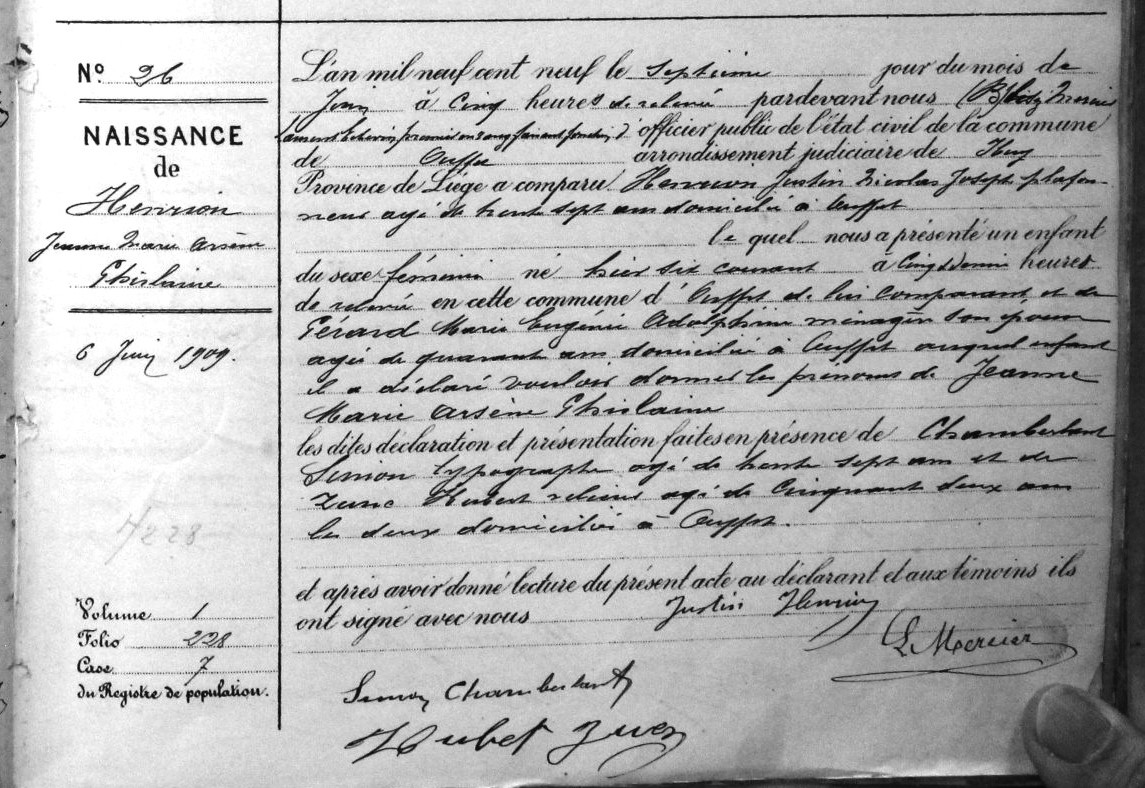 Nº 26
NAISSANCE
de
Henrion
Jeanne Marie Arsène
Ghislaine
6 Juin 1909.
4/228
Volume 1
Folio 228
Case 7
du Registre de population.
L'an mil neuf cent neuf le septième jour du mois de
Juin à cinq heures de relevée pardevant nous Mercier
d'officier public de l'état civil de la commune
de Ouffet arrondissement judiciaire de Huy
Province de Liége a comparu Henrion Justin Nicolas Joseph plafon-
neur agé de trente sept ans domicilié à Ouffet
le quel nous a présenté un enfant
du sexe féminin né hier six courant à cinq & demie heures
de relevée en cette commune d'Ouffet de lui comparant et de
Gérard Marie Eugénie Adolphine ménagère son épouse
agée de quarante ans domiciliée à Ouffet auquel enfant
il a déclaré vouloir donner les prénoms de Jeanne
Marie Arsène Ghislaine
les dites déclaration et présentation faites en présence de Chamberlant
Simon typographe agé de trente sept ans et de
Hubert relieur agé de cinquante deux ans
les deux domiciliés à Ouffet.
et après avoir donné lecture du présent acte au déclarant et aux témoins ils
ont signé avec nous Justin Henrion
L. Mercier
Simon Chamberlant
Hubert